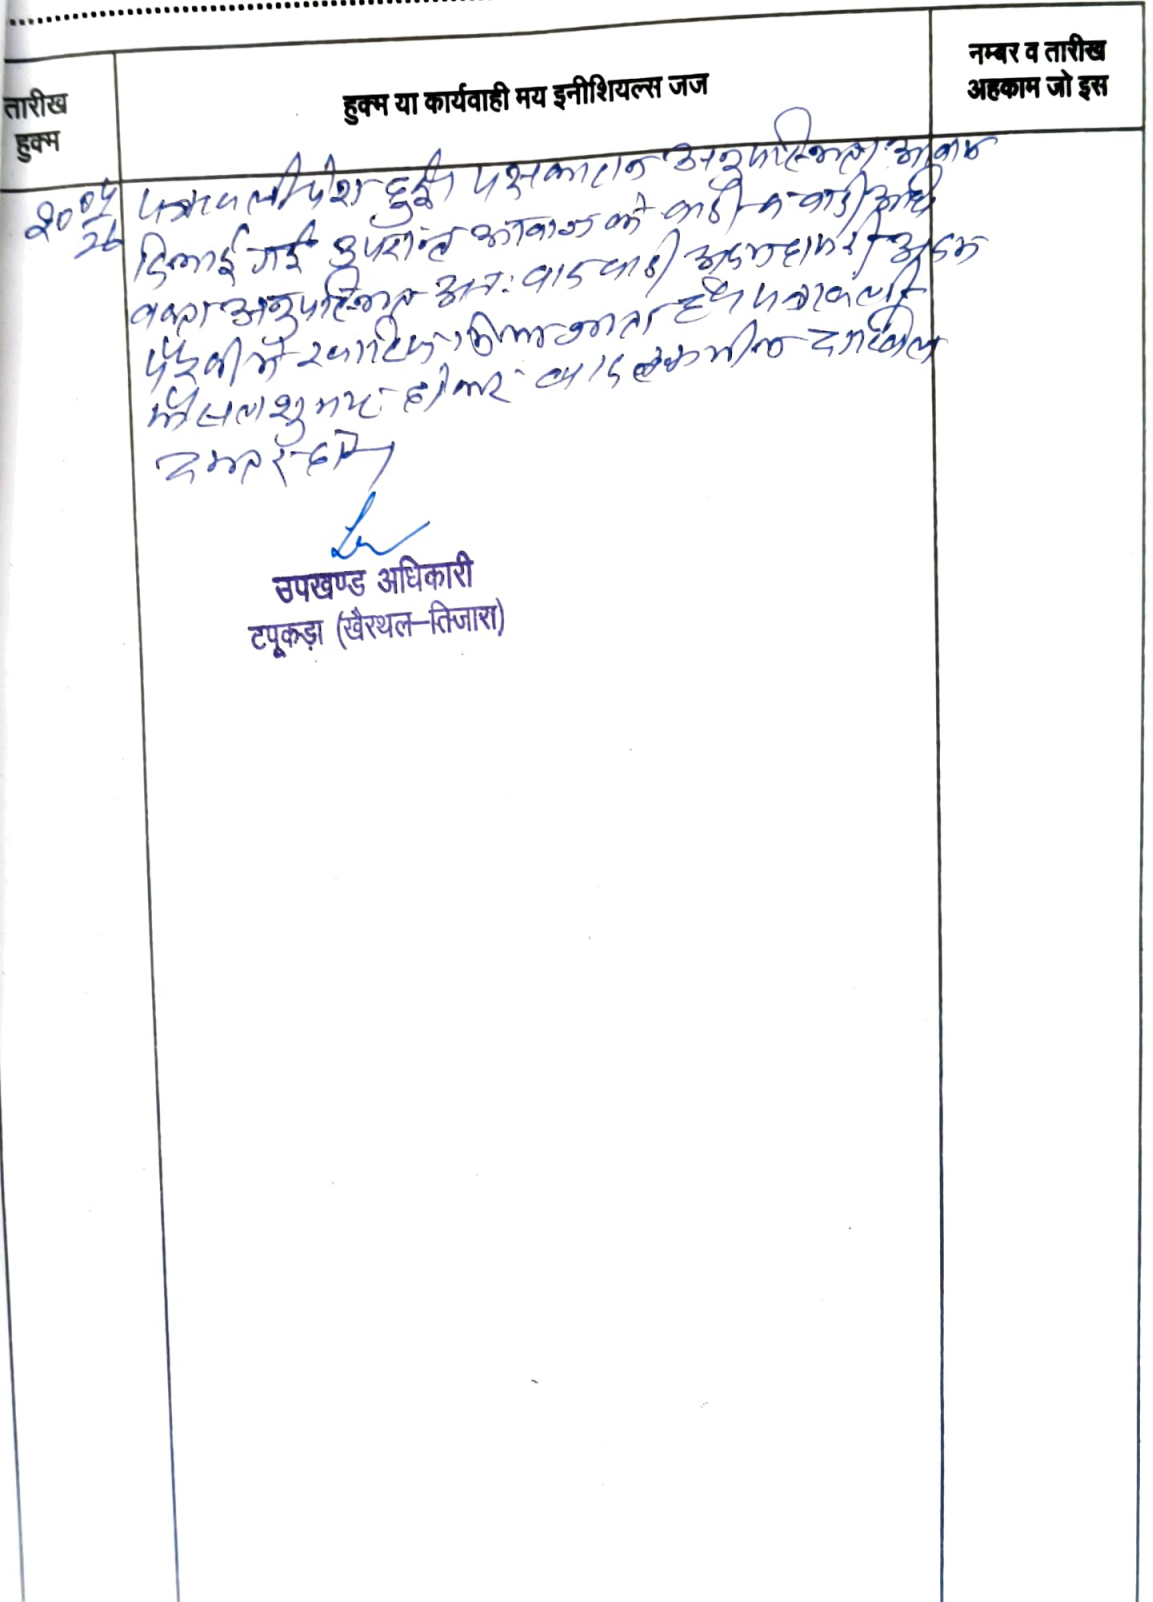 तारीख
हुक्म
हुक्म या कार्यवाही मय इनीशियल्स जज
नम्बर व तारीख
अहकाम जो इस
20
26
पत्रावली पेश हुई। पक्षकारान अनुपस्थित। आवाज
दिलाई गई उपरान्त आवाज के वादी व वादी अधि
वक्ता अनुपस्थित अतः वाद वादी अदम हाजरी अदम
पैरवी में खारिज किया जाता है। पत्रावली
फैसला शुमार होकर बाद तकमील दाखिल
दफ्तर हो।
उपखण्ड अधिकारी
टपूकड़ा (खैरथल–तिजारा)